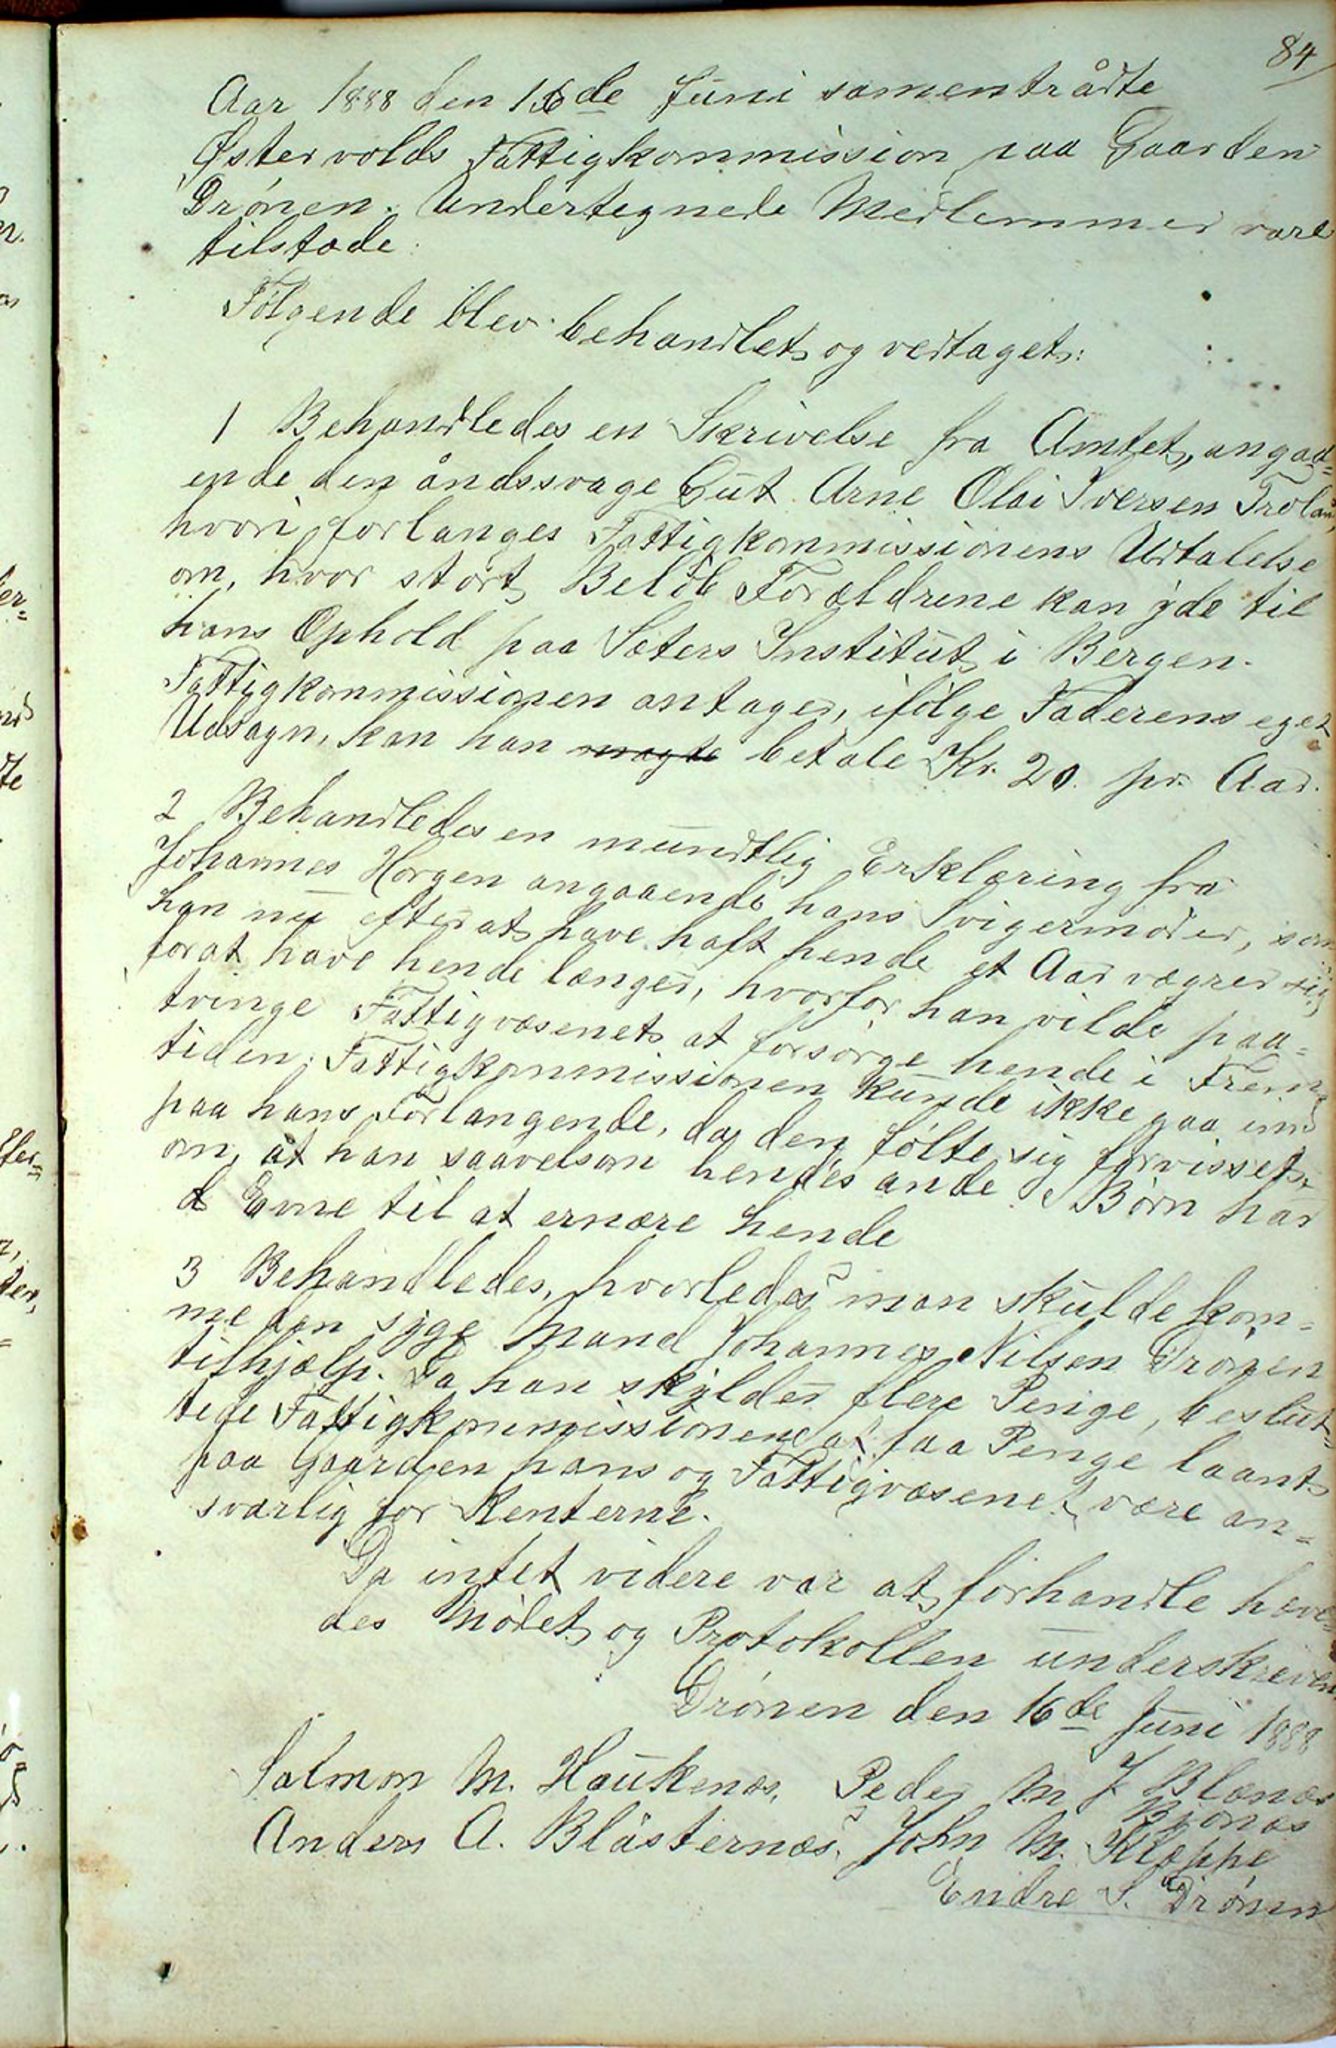 84
Aar 1888 den 16de Juni samentrådte
Østervolds Fattigkommission paa Gaarden
Drønen. Undertegnede Medlemmer vare
tilstæde.
Følgende blev behandlet og vedtaget:
1 Behandledes en Skrivelse fra Amtet, angaa-
ende den åndssvage Gut Arne Olai Iversen
hvori forlanges Fattigkommissionens Udtalelse
om, hvor stort Beløb Forældrene kan yde til
hans Ophold paa Sæters Institut i Bergen.
Fattigkommissionen antager, ifølge Faderens eget
Udsagn, kan han magte betale Kr. 20 pr. Aar.
2 Behandledes en mundtlig Erklæring fra
Johannes Horgen angaaende hans Svigermoder, som
han nu efter at have haft hende et Aar vægrer sig
for at have hende længer, hvorfor han vilde paa-
tvinge Fattigvæsenet at forsørge hende i Frem-
tiden. Fattigkommissionen kunde ikke gaa ind
paa hans Forlangende, da den følte sig forvisset
om, at han saavelsom hendes andre Børn har
Evne til at ernære hende
3 Behandledes, hvorledes man skulde kom-
me den syge Mand Johannes Nilsen Drønen
tilhjælp. Da han skylder flere Penge, beslut-
tede Fattigkommissionen at faa Penge laant
paa Gaarden hans og Fattigvæsenet være an-
svarlig for Renterne.
Da intet videre var at forhandle hæve-
des Mødet og Protokollen underskreven
Drønen den 16de Juni 1888
Salmon M. Haukenæs, Peder M J Blænæs
Bjonæs
Anders A. Blåsternæs, John M. Kleppe
Endre S. Drønen